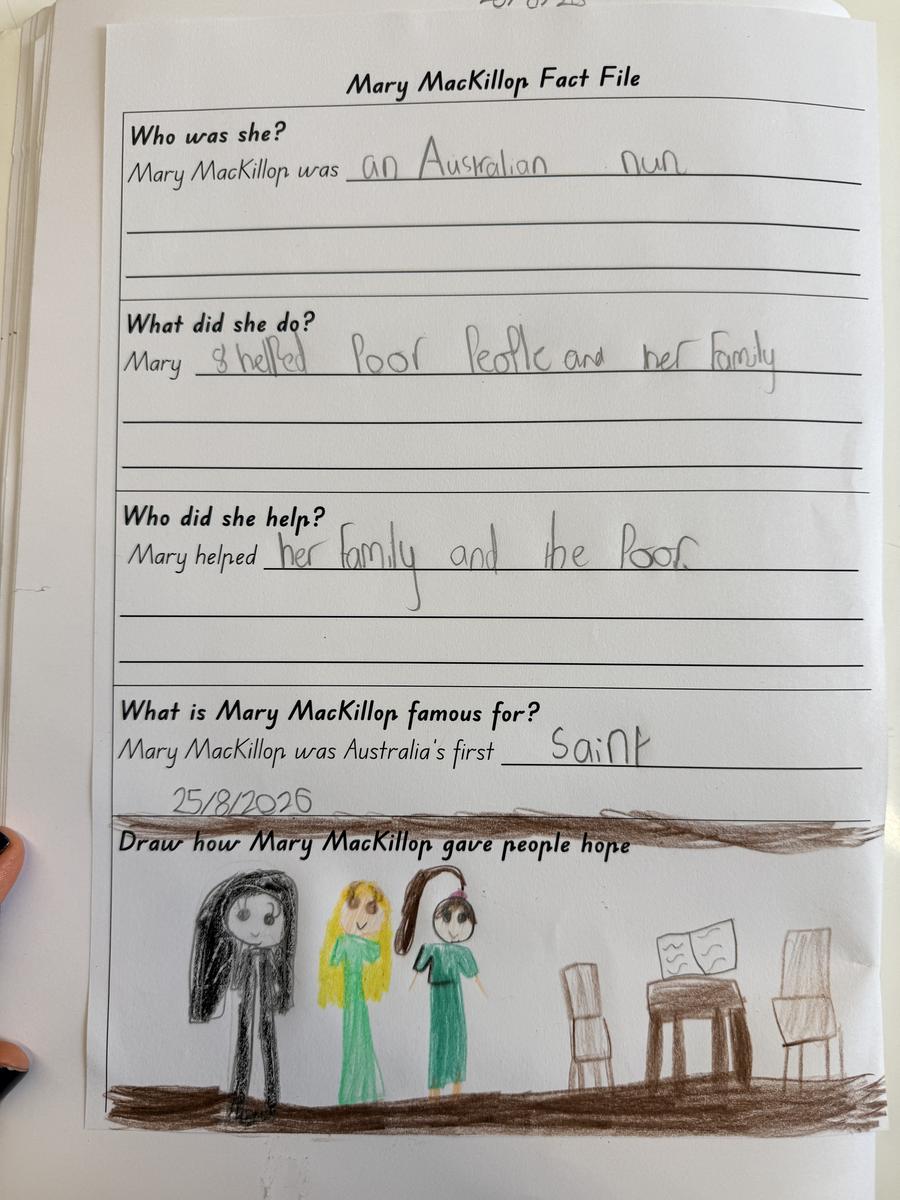 Mary MacKillop Fact File
Who was she?
Mary MacKillop was an Australian nun
What did she do?
Mary helped Poor People and her Family
Who did she help?
Mary helped her Family and the Poor.
What is Mary MacKillop famous for?
Mary MacKillop was Australia's first Saint
25/8/2026
Draw how Mary MacKillop gave people hope